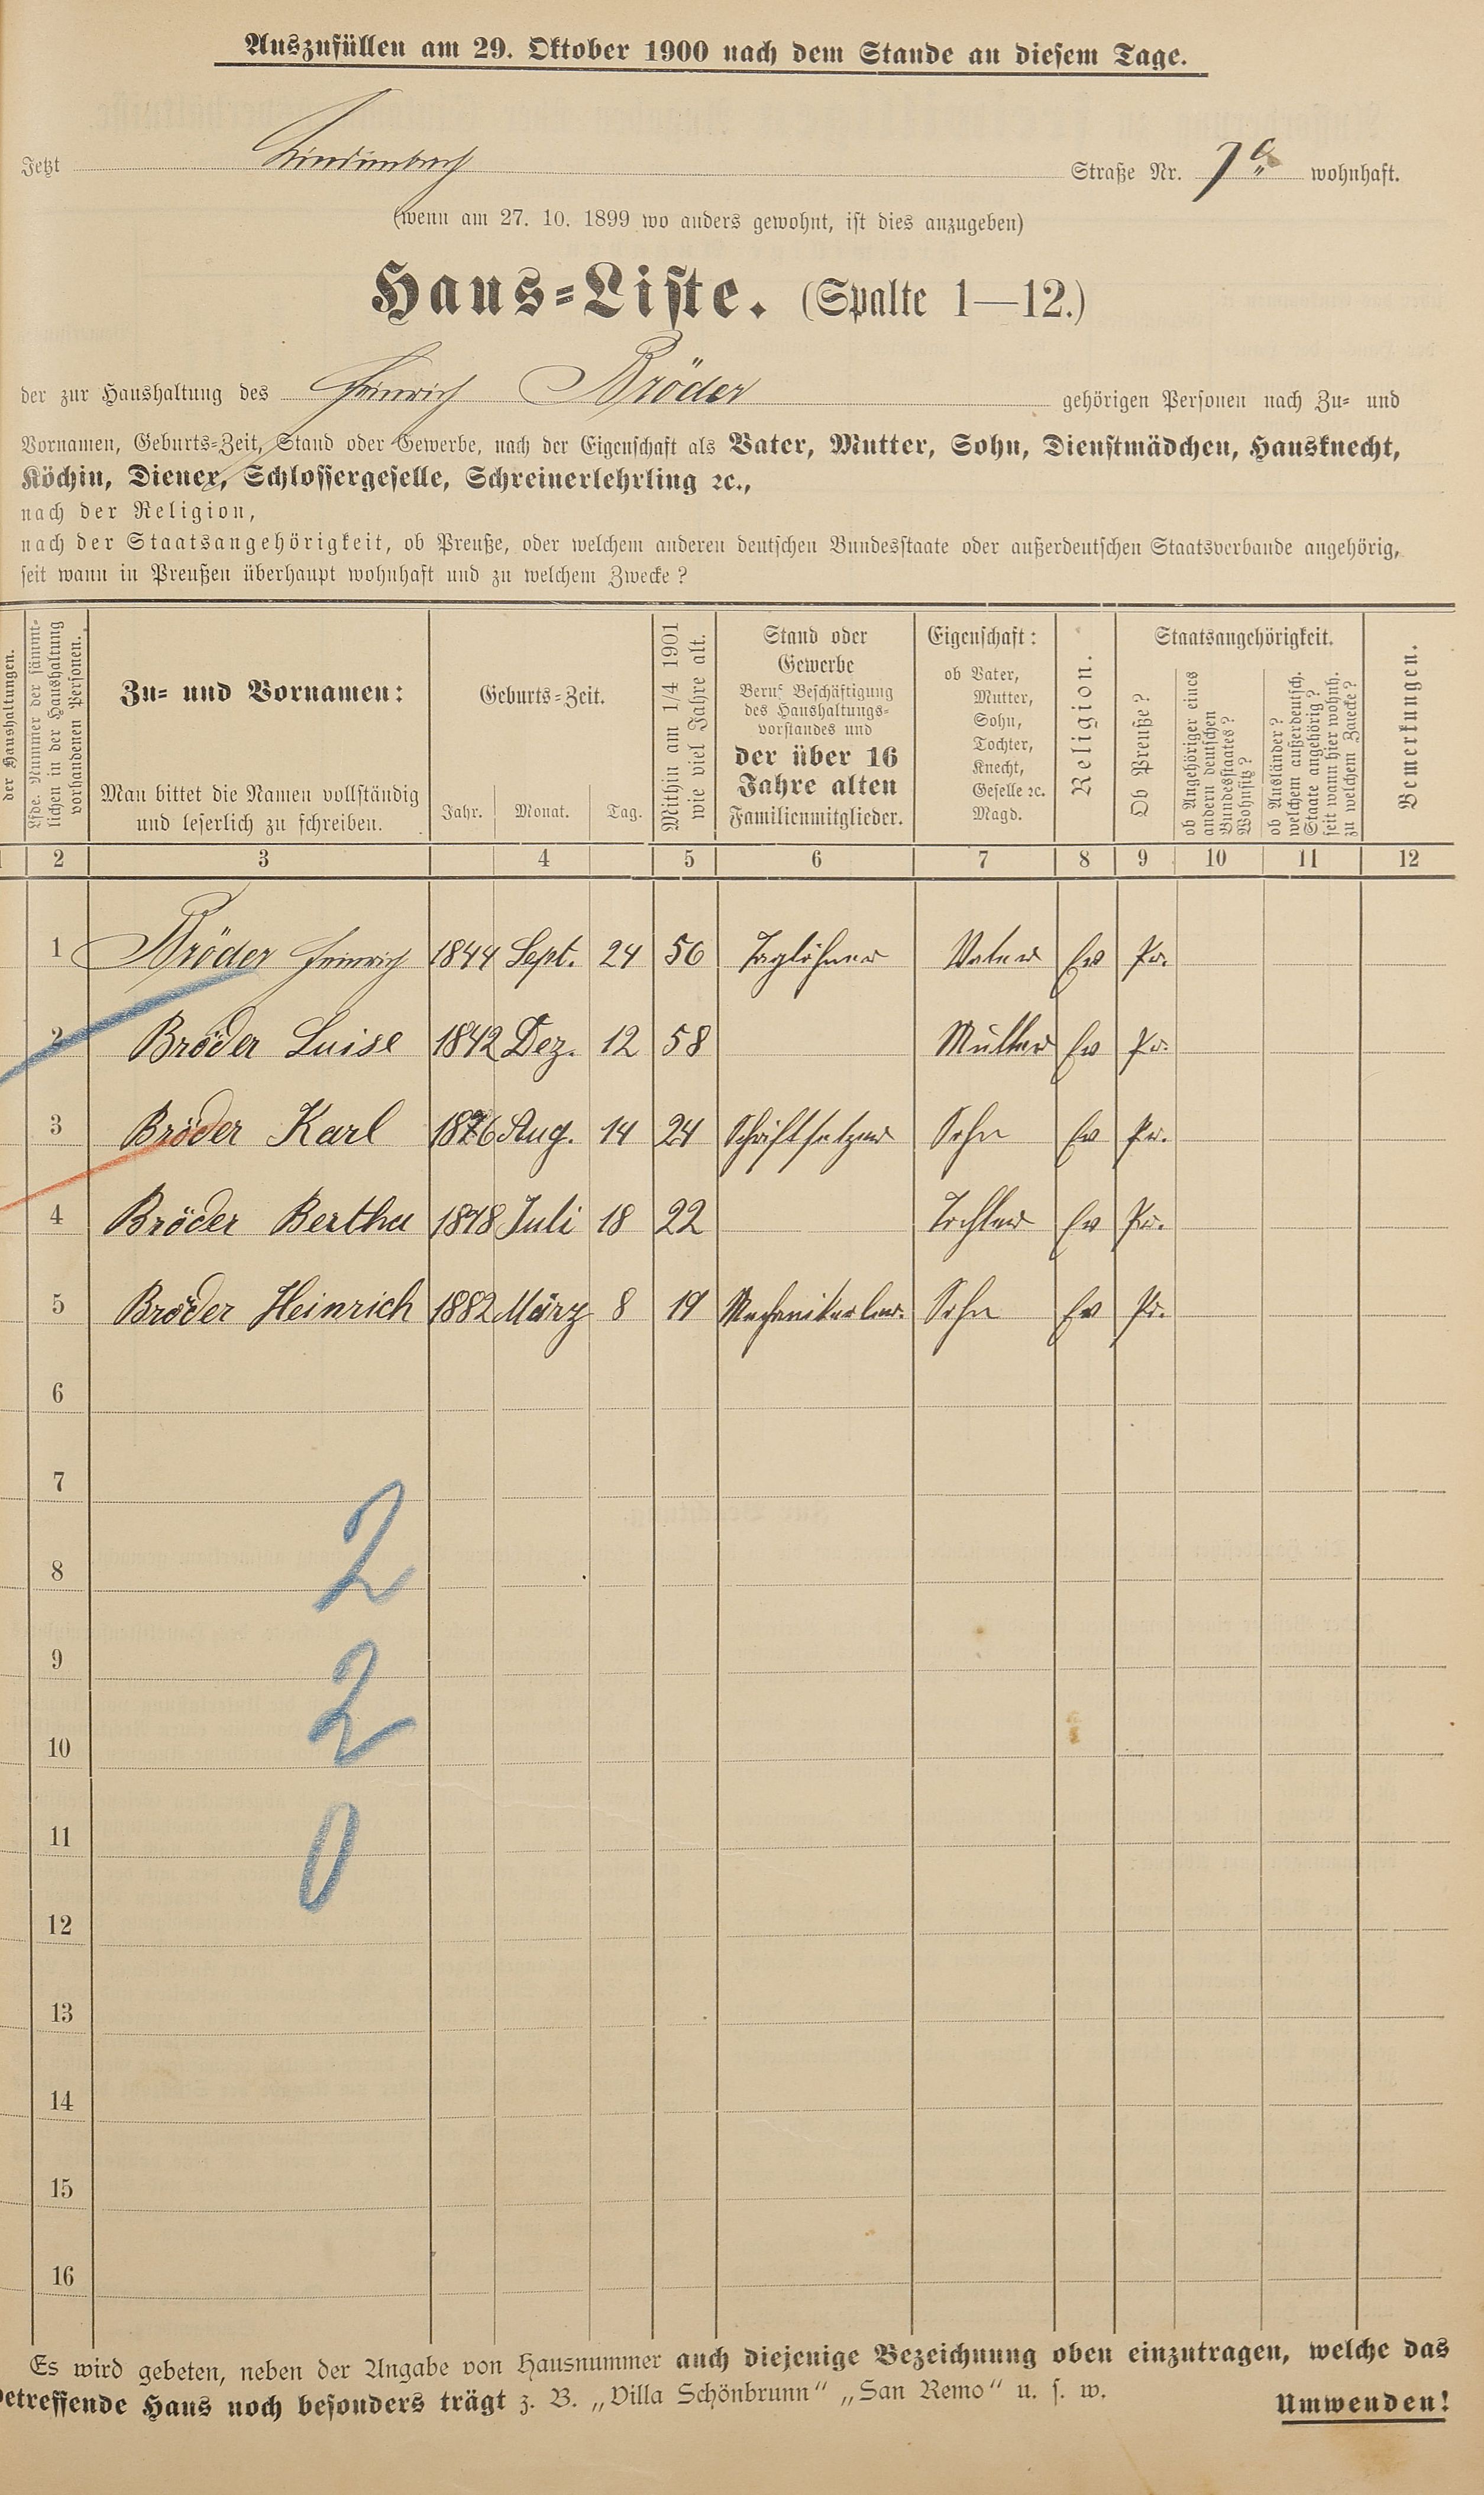 Auszufüllen am 29. Oktober 1900 nach dem Stande an diesem Tage.
Jetzt Lindenbach Straße Nr. 7a wohnhaft.
(wenn am 27. 10. 1899 wo anders gewohnt, ist dies anzugeben)
Haus-Liste. (Spalte 1—12.)
der zur Haushaltung des Heinrich Bröder gehörigen Personen nach Zu- und
Vornamen, Geburts-Zeit, Stand oder Gewerbe, nach der Eigenschaft als Vater, Mutter, Sohn, Dienstmädchen, Hausknecht,
Köchin, Diener, Schlossergeselle, Schreinerlehrling ꝛc.,
nach der Religion,
nach der Staatsangehörigkeit, ob Preuße, oder welchem anderen deutschen Bundesstaate oder außerdeutschen Staatsverbande angehörig,
seit wann in Preußen überhaupt wohnhaft und zu welchem Zwecke?
der Haushaltungen.
Lfde. Nummer der sämmt-
lichen in der Haushaltung
vorhandenen Personen.
Zu- und Vornamen:
Man bittet die Namen vollständig
und leserlich zu schreiben.
Geburts-Zeit.
Jahr. Monat. Tag.
Mithin am 1/4 1901
wie viel Jahre alt.
Stand oder
Gewerbe
Beruf Beschäftigung
des Haushaltungs-
vorstandes und
der über 16
Jahre alten
Familienmitglieder.
Eigenschaft:
ob Vater,
Mutter,
Sohn,
Tochter,
Knecht,
Geselle ꝛc.
Magd.
Religion.
Staatsangehörigkeit.
Ob Preuße?
ob Angehöriger eines
andern deutschen
Bundesstaates?
Wohnsitz?
ob Ausländer?
welchem außerdeutsch.
Staate angehörig?
seit wann hier wohnh.
zu welchem Zwecke?
Bemerkungen.
2 3 4 5 6 7 8 9 10 11 12
1 Bröder Heinrich 1844 Sept. 24 56 Taglöhner Vater Ev Pr.
2 Bröder Luise 1842 Dez. 12 58 Mutter Ev Pr.
3 Bröder Karl 1876 Aug. 14 24 Schriftsetzer Sohn Ev Pr.
4 Bröder Bertha 1878 Juli 18 22 Tochter Ev Pr.
5 Bröder Heinrich 1882 März 8 19 Sohn Ev Pr.
6
7
2
8
9
2
10
11
0
12
13
14
15
16
Es wird gebeten, neben der Angabe von Hausnummer auch diejenige Bezeichnung oben einzutragen, welche das
betreffende Haus noch besonders trägt z. B. „Villa Schönbrunn“ „San Remo“ u. s. w.
Umwenden!